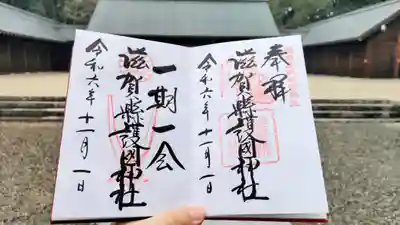 奉拝
滋賀縣護國神社
令和六年十一月一日
一期一会
滋賀縣護國神社
令和六年十一月一日